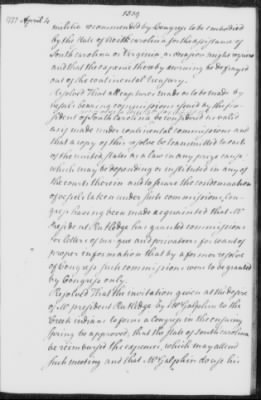 1309
1777 April 4
militia recommended by Congress to be embodied
by the state of North carolina for the assistance of
South carolina or Virginia, as occasion might require
and that the expence thereby accruing be defrayed
out of the continental treasury.
Resolved That all captures made or to be made by
vessels bearing commissions issued by the pre-
sident of South Carolina be considered as valid
as if made under continental commissions and
that a copy of this resolve be transmitted to each
of the united states as a law in any prize cause
which may be depending or instituted in any of
the courts therein and to procure the condemnation
of vessels taken under such commissions, Con-
gress having been made acquainted that Mr
President Rutledge has granted commissions
for letters of marque and privateers for want of
proper information that by a former resolve
of Congress such commissions were to be granted
by Congress only.
Resolved That the invitation given at the desire
of Mr president Rutledge by Mr Galphin to the
Creek indians to form a congress in the ensuing
spring be approved; that the state of South carolina
be reimbursed the expence, which may attend
such meeting and that Mr Galphin do use his